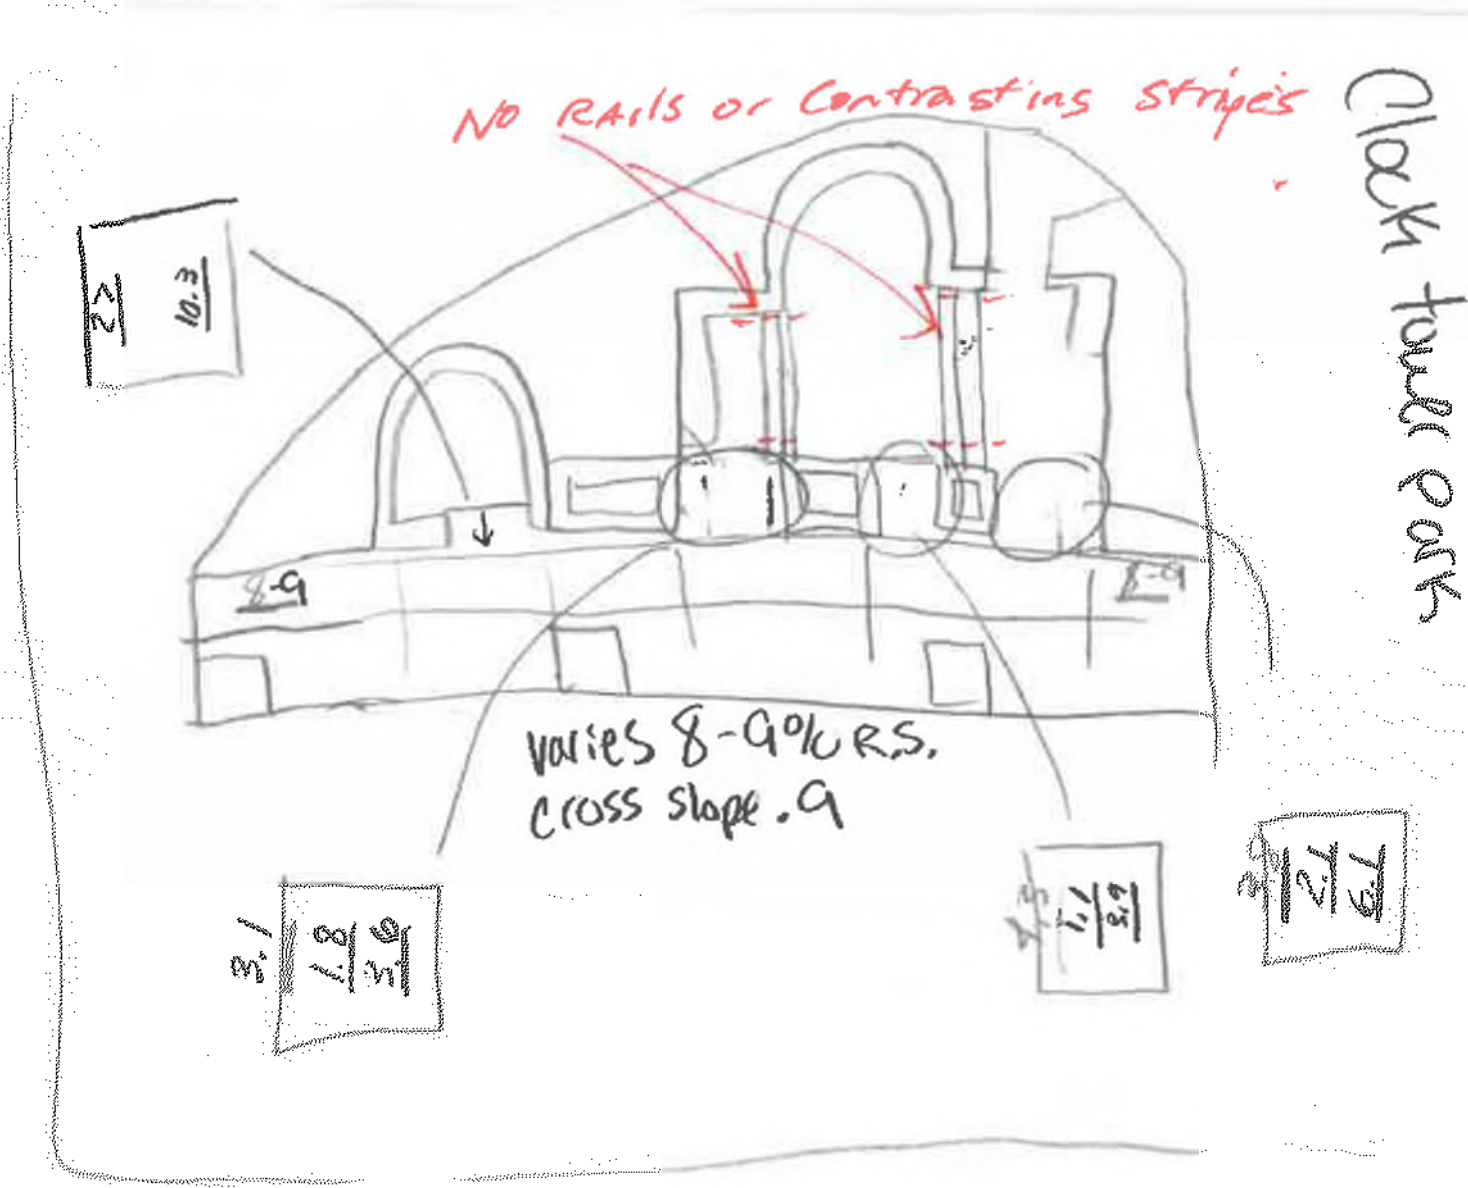 No Rails or Contrasting Stripes
Clock tower park
10.3
8-9
8-9
varies 8-9% R.S.
cross slope .9
3.1
1.8
3.6
1.1
3.9
2.1
6.1